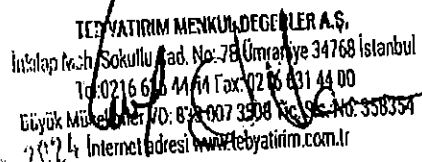 TEB YATIRIM MENKUL DEĞERLER A.Ş.
İnkılap Mah. Sokullu Cad. No: 7B Ümraniye 34768 İstanbul
Tel:0216 636 44 44 Fax: 0216 631 44 00
Büyük Mükellefler VD: 007 3508 Tic. Sic. No: 358354
İnternet adresi www.tebyatirim.com.tr